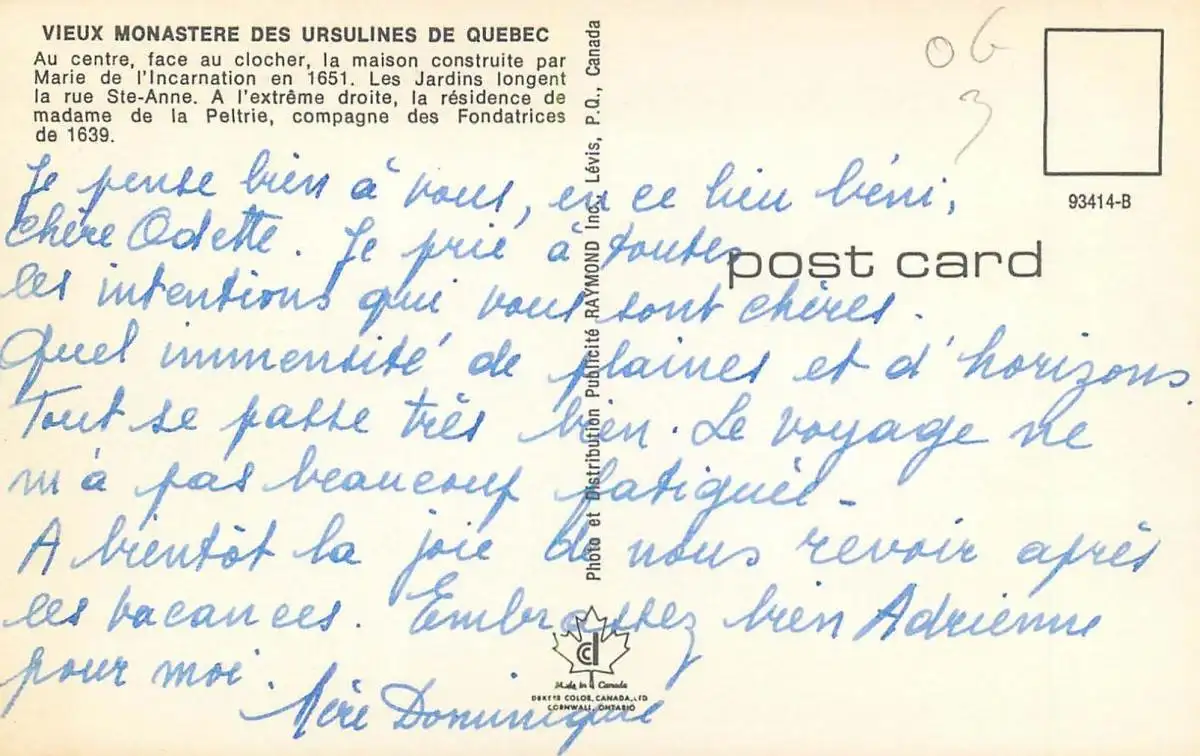 VIEUX MONASTERE DES URSULINES DE QUEBEC
Au centre, face au clocher, la maison construite par
Marie de l'Incarnation en 1651. Les Jardins longent
la rue Ste-Anne. A l'extrême droite, la résidence de
madame de la Peltrie, compagne des Fondatrices
de 1639.
Je pense bien à vous, en ce lieu béni,
chère Odette. Je prie à toutes
les intentions qui vous sont chères.
Quel immensité de plaines et d'horizons.
Tout se passe très bien. Le voyage ne
m'a pas beaucoup fatiguée.
A bientôt la joie de nous revoir après
les vacances. Embrassez bien Adrienne
pour moi.
Mère Dominique
Photo et Distribution Publicité RAYMOND Inc., Lévis, P.Q., Canada
06
3
93414-B
post card
cd
Made in Canada
DEXTER COLOR, CANADA, LTD
CORNWALL, ONTARIO